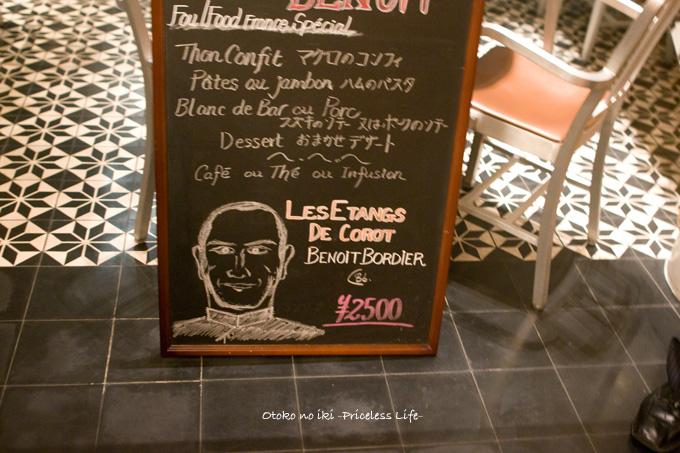 BENOIT
FoulFood France Spécial
Thon Confit マグロのコンフィ
Pâtes au jambon ハムのパスタ
Blanc de Bar ou Porc
スズキのソテー 又はポークのソテー
Dessert おまかせデザート
Café ou Thé ou Infusion
LES ETANGS
DE COROT
BENOIT BORDIER
¥2500
Otoko no iki -Priceless Life-